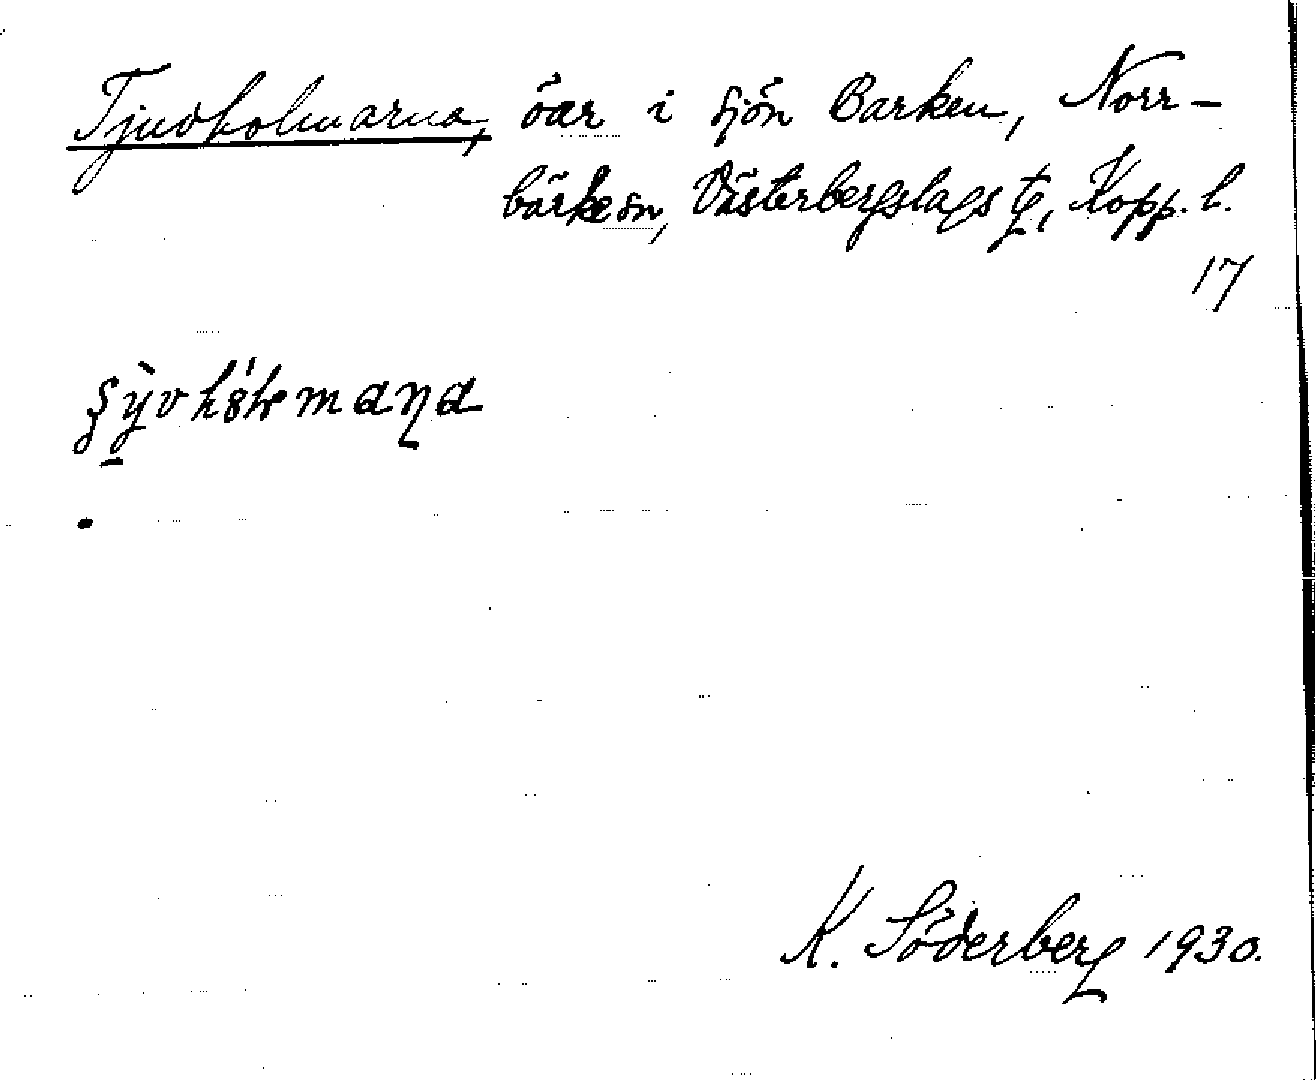 Tjuvholmarna, öar i sjön Barken, Norr-
bärke sn, Västerbergslags tg, Kopp. l.
17
K. Söderberg 1930.